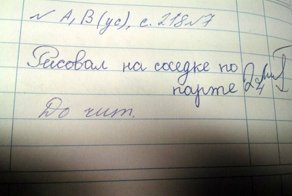 N A, B (ус), с. 218 N 7
Рисовал на соседке по
парте
До чит.